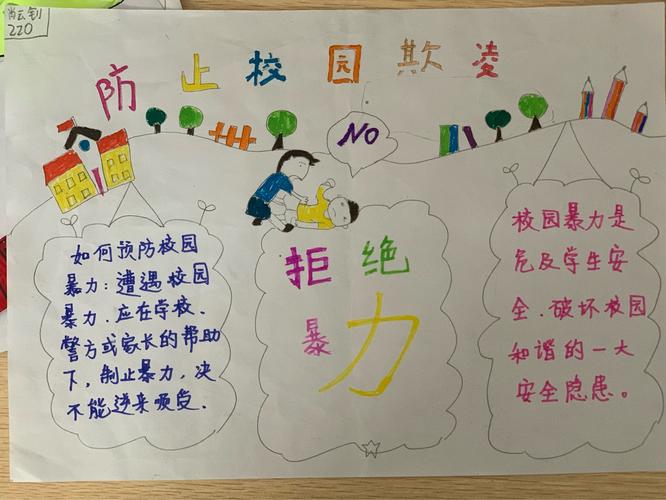 肖云钊
220
防止校园欺凌
NO
如何预防校园
暴力:遭遇校园
暴力.应在学校.
警方或家长的帮助
下,制止暴力,决
不能逆来顺受.
拒绝
暴力
校园暴力是
危及学生安
全.破坏校园
和谐的一大
安全隐患。